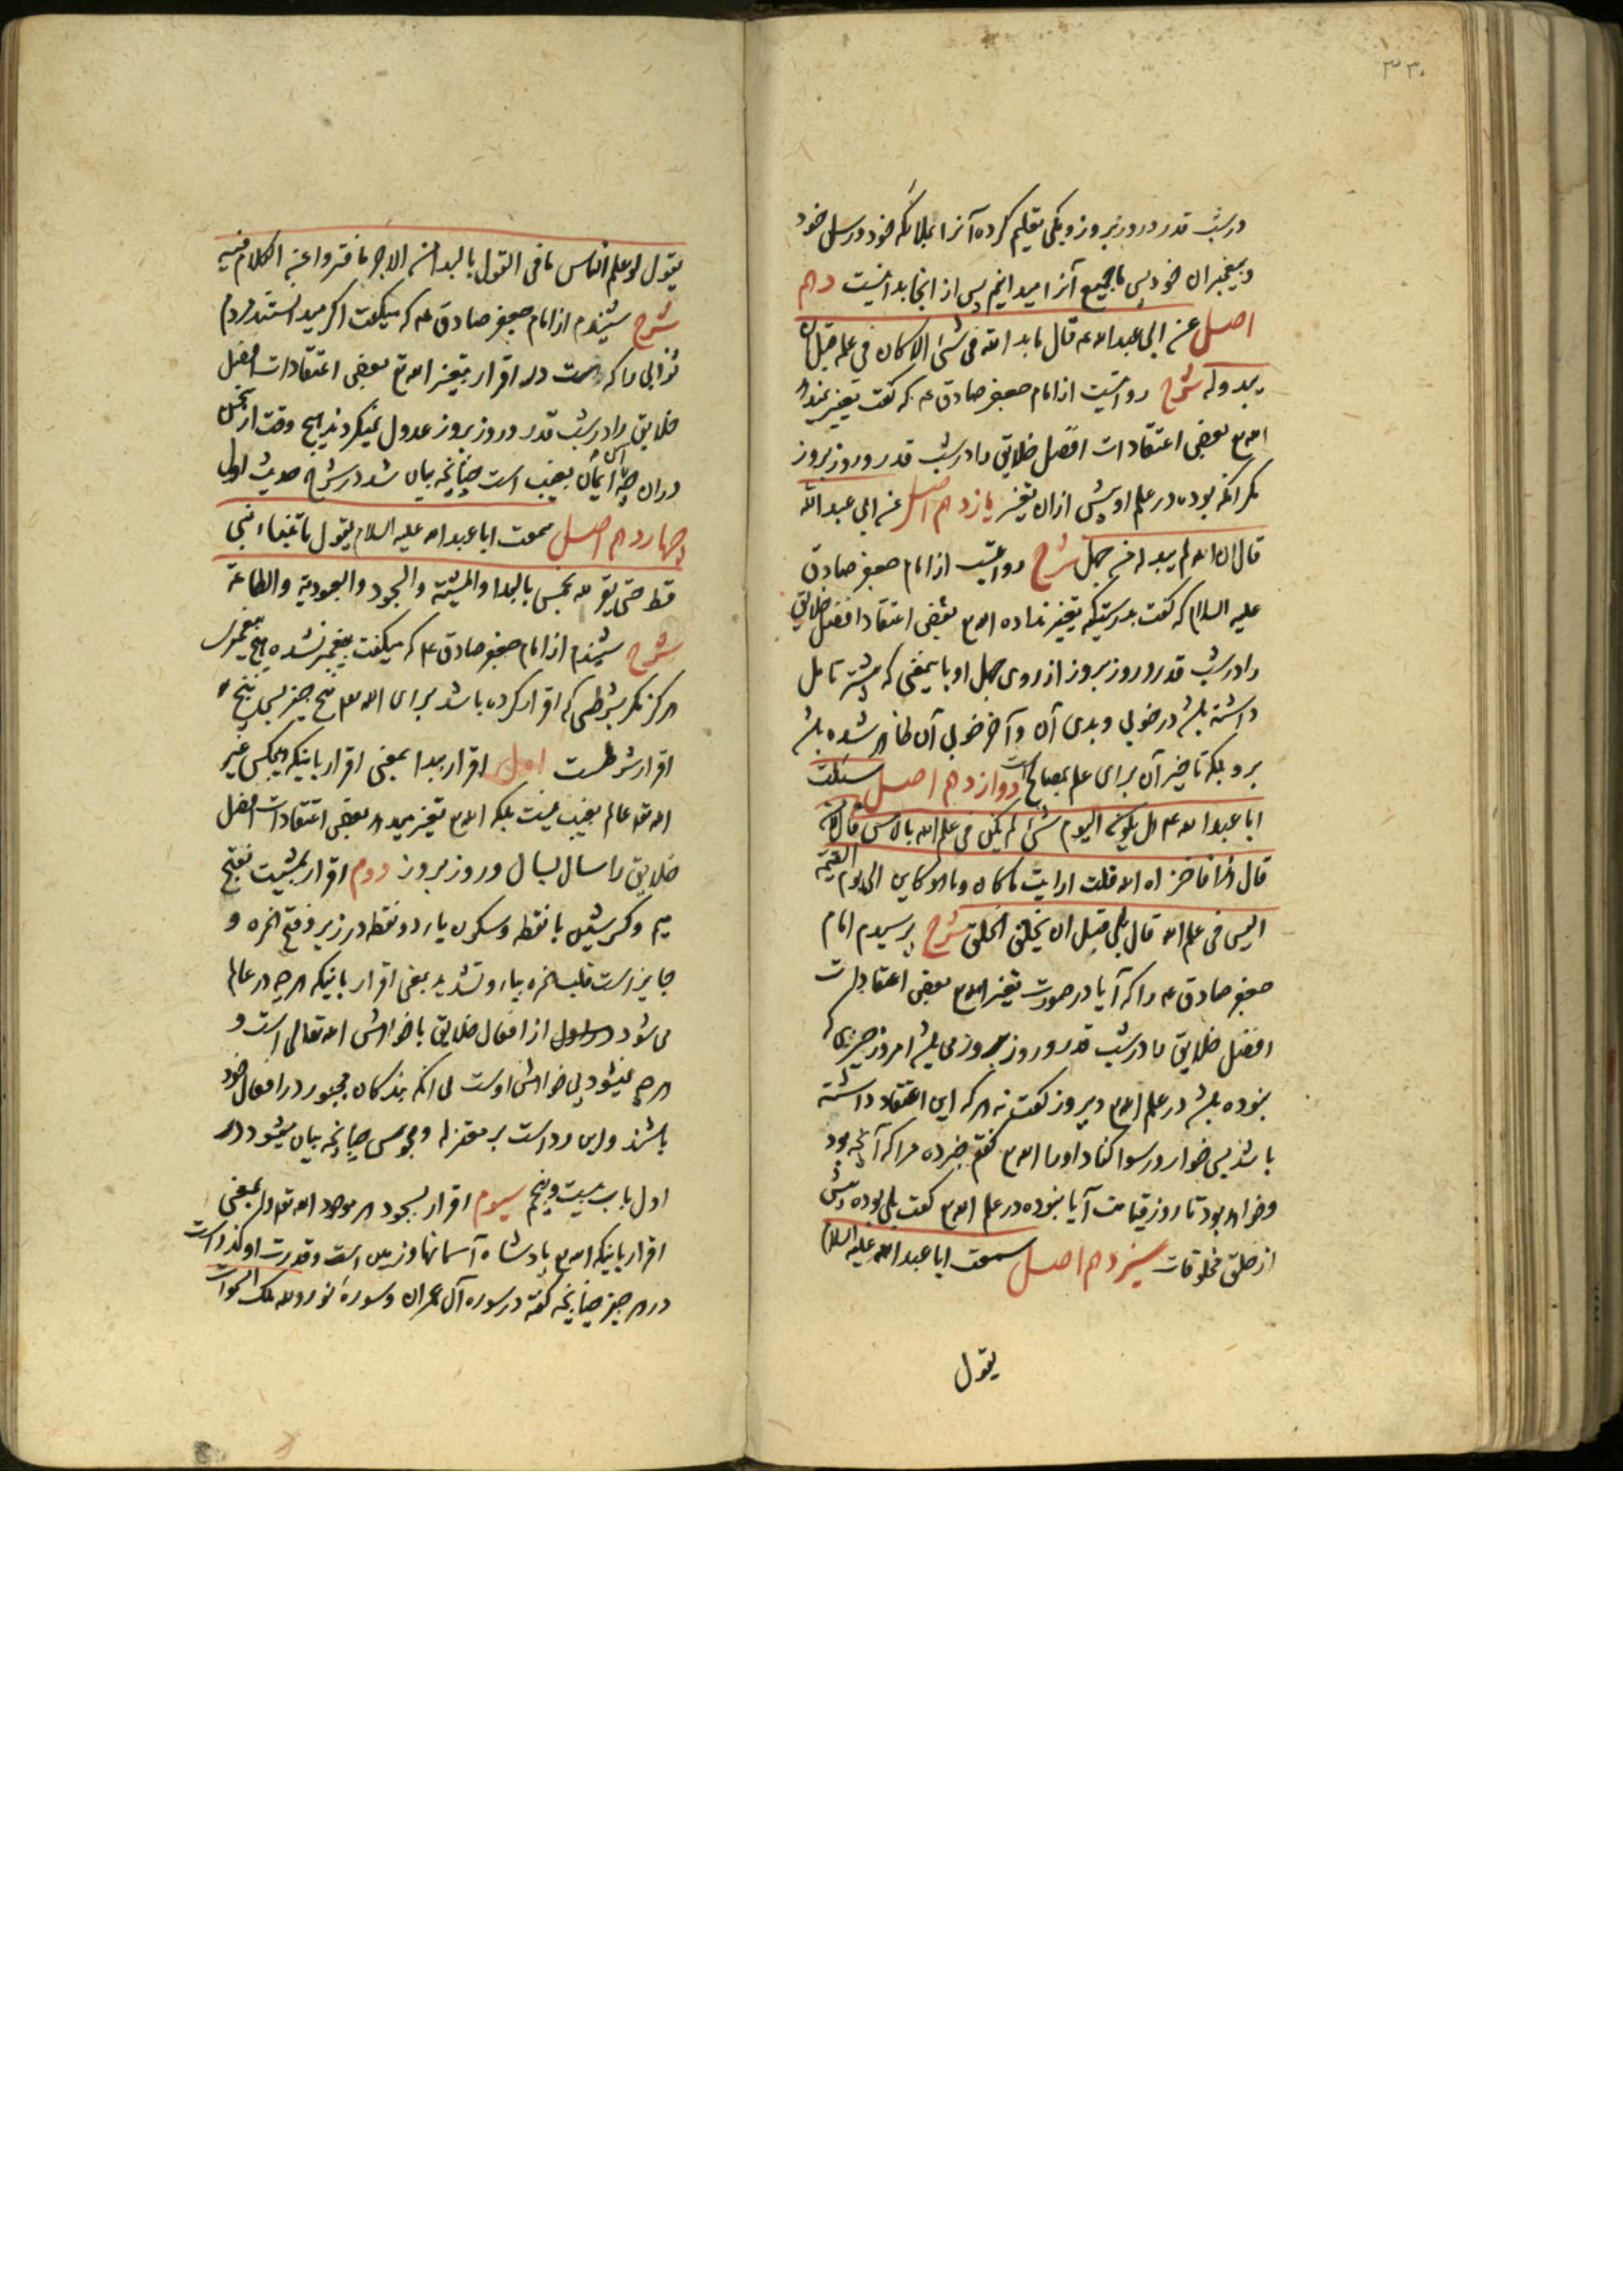 ۳۳۰
در شب قدر و روز بروز و یکی تعلیم کرده آنرا بملائکه خود و رسل خود
و پیغمبران خود پس ما جمیع آنرا میدانیم پس از اینجا بدا نیست دهم
اصل عن ابی عبد الله ع قال ما بدا لله فی شئ الا کان فی علمه قبل ان
یبدو له شرح روایتست از امام جعفر صادق ع که گفت تغییر نمیدهد
الله ع بعضی اعتقادات افضل خلایق را در شب قدر و روز بروز
مگر آنکه بوده در علم او پیش ازان تغییر یازدهم اصل عن ابی عبد الله
قال ان الله لم یبد له من جهل شرح روایتست از امام جعفر صادق
علیه السلام که گفت بدرستیکه تغییر نداده الله ع بعضی اعتقاد افضل خلایق
را در شب قدر و روز بروز از روی جهل او باینمعنی که پیشتر تامل
داشته باشد در خوبی و بدی آن و آخر خوبی آن ظاهر شده باشد
برو بلکه تاخیر آن برای علم بمصالح است دوازدهم اصل سئلت
ابا عبد الله ع هل یکون الیوم شئ لم یکن فی علم الله بالامس قال لا من
قال هذا فاخزاه الله قلت ارایت ما کان و ما هو کاین الی یوم القیمة
الیس فی علم الله قال بلی قبل ان یخلق الخلق شرح پرسیدم امام
جعفر صادق ع را که آیا در صورت تغییر الله ع بعضی اعتقادات
افضل خلایق را در شب قدر و روز بروز می باشد امروز چیزی که
نبوده باشد در علم الله ع دیروز گفت نه هر که این اعتقاد داشته
باشد پس خوار و رسوا کناد او را الله ع گفتم خبر ده مرا که آنچه بود
و خواهد بود تا روز قیامت آیا نبوده در علم الله ع گفت بلی بوده پیش
از خلق مخلوقات سیزدهم اصل سمعت ابا عبد الله علیه السلام
یقول
یقول لو علم الناس ما فی القول بالبدا من الاجر ما فتروا عن الکلام فیه
شرح شنیدم از امام جعفر صادق ع که میگفت اگر میدانستند مردم
ثوابی را که هست در اقرار بتغییر الله ع بعضی اعتقادات افضل
خلایق را در شب قدر و روز بروز عدول نمیکردند هیچ وقت از سخن
دران چه اساس ایمان بغیب است چنانچه بیان شد در شرح حدیث اول
چهاردهم اصل سمعت ابا عبد الله علیه السلام یقول ما تنباء نبی
قط حتی یقر لله بخمس بالبدا و المشیة و السجود و العبودیة و الطاعة
شرح شنیدم از امام جعفر صادق ع که میگفت پیغمبر نشده هیچ پیغمبری
هرگز مگر بشرطی که اقرار کرده باشد برای الله ع پنج چیز پس پنج
اقرار شرطست اول اقرار ببدا بمعنی اقرار باینکه هیچکس غیر
الله تع عالم بغیب نیست بلکه الله ع تغییر میدهد بعضی اعتقادات افضل
خلایق را سال بسال و روز بروز دوم اقرار بمشیت بفتح
میم و کسر شین با نقطه و سکون یاء دو نقطه در زیر و فتح همزه و
جایز است قلب همزه بیاء و تشدید بمعنی اقرار باینکه هر چه در عالم
می شود از افعال خلایق با خواهش الله تعالی است و
هر چه نمیشود بی خواهش اوست بی آنکه بندگان مجبور در افعال خود
باشند و این رد است بر معتزله و مجوس چنانچه بیان میشود در
اول باب بیست و پنجم سیوم اقرار بسجود هر موجود الله تع را بمعنی
اقرار باینکه الله ع پادشاه آسمانها و زمین است و قدرت او گذراست
در هر چیز چنانچه گفته در سوره آل عمران و سورهٔ نور و لله ملک السموات